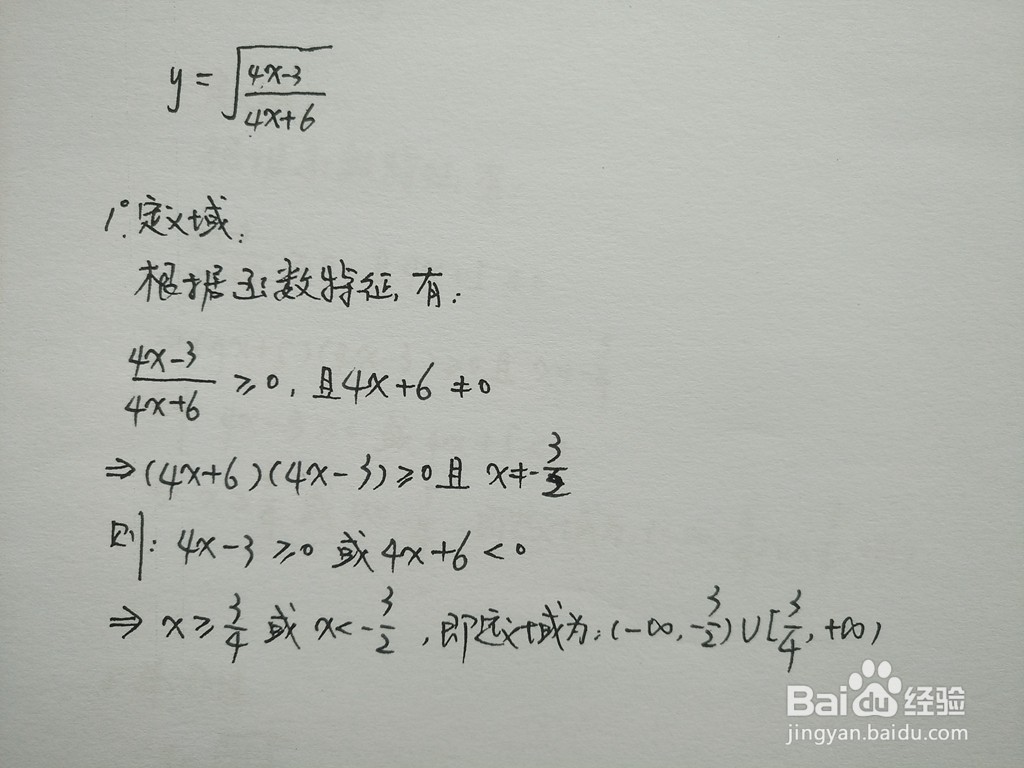 y = √((4x-3)/(4x+6))
1°. 定义域:
根据函数特征, 有:
(4x-3)/(4x+6) ≥ 0, 且 4x+6 ≠ 0
⇒ (4x+6)(4x-3) ≥ 0 且 x ≠ -3/2
则: 4x-3 ≥ 0 或 4x+6 < 0
⇒ x ≥ 3/4 或 x < -3/2, 即定义域为: (-∞, -3/2) ∪ [3/4, +∞)
Baidu经验
jingyan.baidu.com